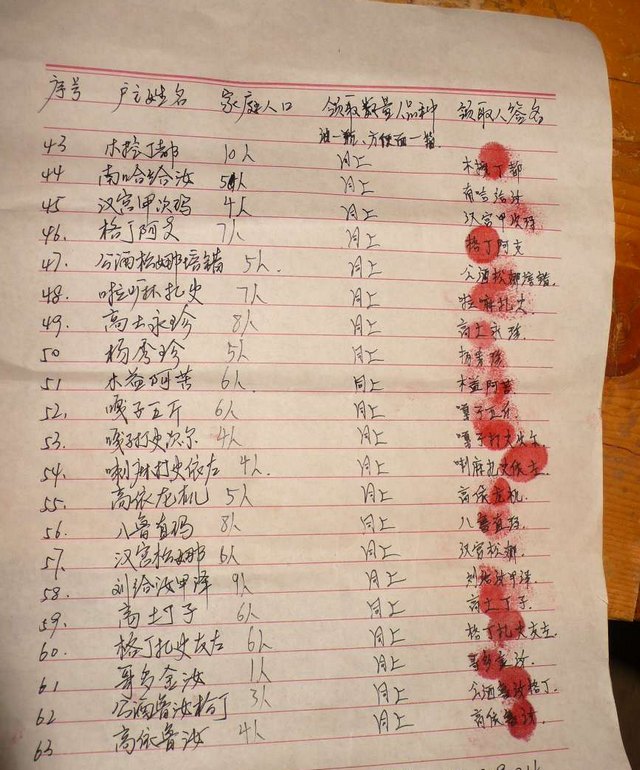 序号 户主姓名 家庭人口 领取数量/品种 领取人签名
油一瓶、方便面一箱
43 木格丁都 10人 同上 木格丁都
44 南哈给汝 5人 同上 南哈给汝
45 汉宫甲次玛 4人 同上 汉宫甲次玛
46. 格丁阿支 7人 同上 格丁阿支
47. 公酒松娜培错 5人. 同上 公酒松娜培错.
48. 啦麻扎史 7人 同上 啦麻扎史
49. 高土永珍 8人 同上 高土永珍
50 杨秀珍 5人 同上 杨秀珍
51 木益阿苦 6人. 同上 木益阿苦
52. 嘎子五斤 6人 同上 嘎子五斤
53. 嘎子打史次尔 4人 同上
54. 喇麻打史依左 4人. 同上
55. 高依龙机 5人 同上 高依龙机
56. 八鲁直玛 8人 同上 八鲁直玛
57. 汉宫松娜 6人 同上 汉宫松娜.
58. 刘给汝甲泽 9人 同上 刘给汝甲泽
59. 高土丁子 6人 同上 高土丁子.
60. 格丁扎史友左 6人 同上
61 哥多金汝 1人 同上 哥多金汝.
62 公酒鲁汝格丁 3人 同上 公酒鲁汝格丁.
63 高依鲁汝 4人 同上 高依鲁汝